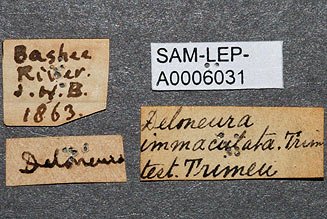 Bashee
River.
J.H.B.
1863.
SAM-LEP-
A0006031
Deloneura
Deloneura
immaculata. Trim
test. Trimen